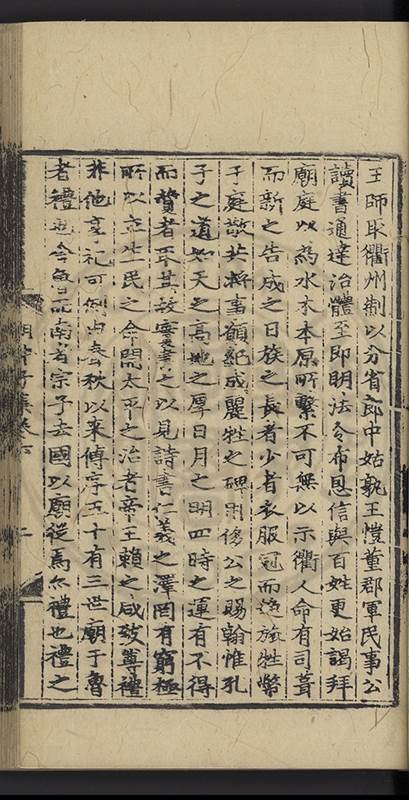 王師取衢州制以分省郎中姑孰王愷董郡軍民事公
讀書通達治體至即明法令布恩信與百姓更始謁拜
廟庭以為水木本原所繫不可無以示衢人命有司葺
而新之告成之日族之長者少者衣服冠而造旅牲幣
于庭敬共將事願紀成麗牲之碑則俢公之賜翰惟孔
子之道如天之高地之厚日月之明四時之運有不得
而贊者采其故實書之以見詩書仁義之澤罔有窮極
所以立生民之命開太平之治者帝王賴之咸致尊禮
非他享礼可例由春秋以来傳序五十有三世廟于魯
者禮也今魯而南者宗子去國以廟從焉亦禮也禮之
胡仲子集卷六